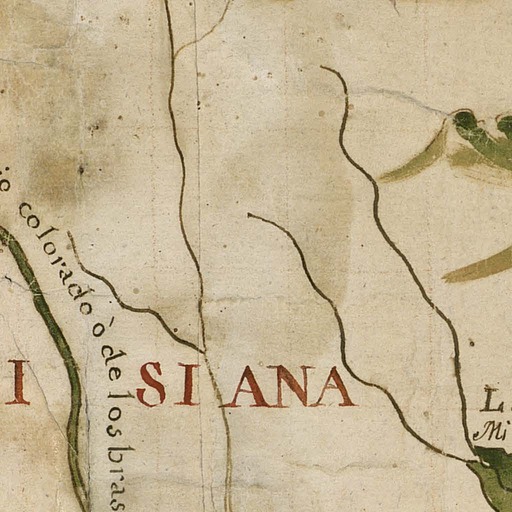 io colorado ò de los bras
I SIANA
L
Mi